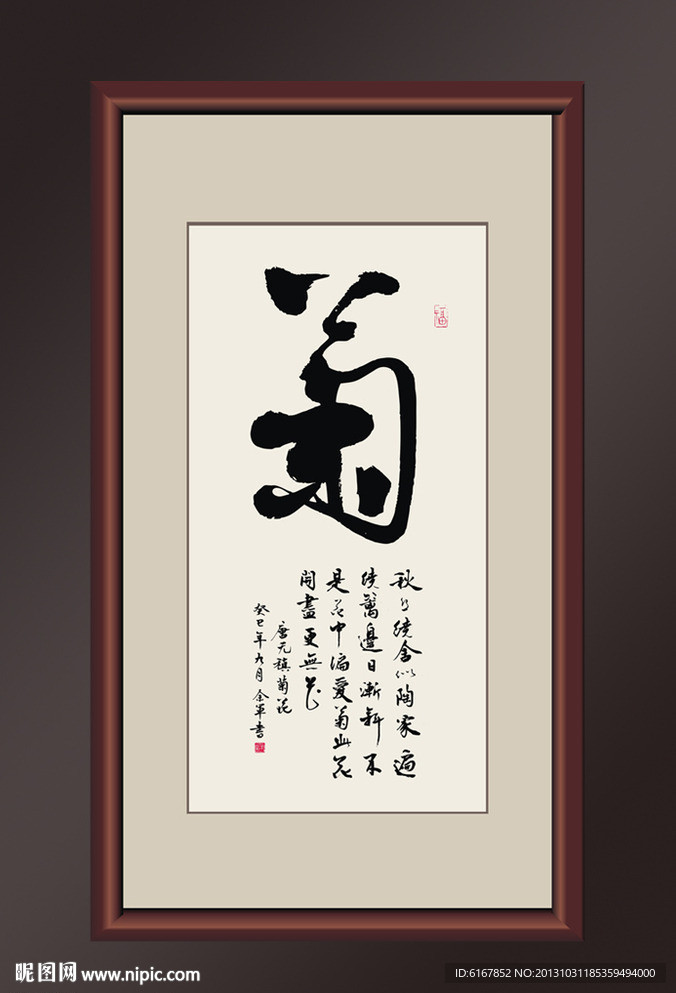 菊
秋丛繞舍似陶家遍
繞籬邊日漸斜不
是花中偏愛菊此花
開盡更無花
唐元稹菊花
癸巳年九月余軍書
昵图网 www.nipic.com
ID:6167852 NO:20131031185359494000